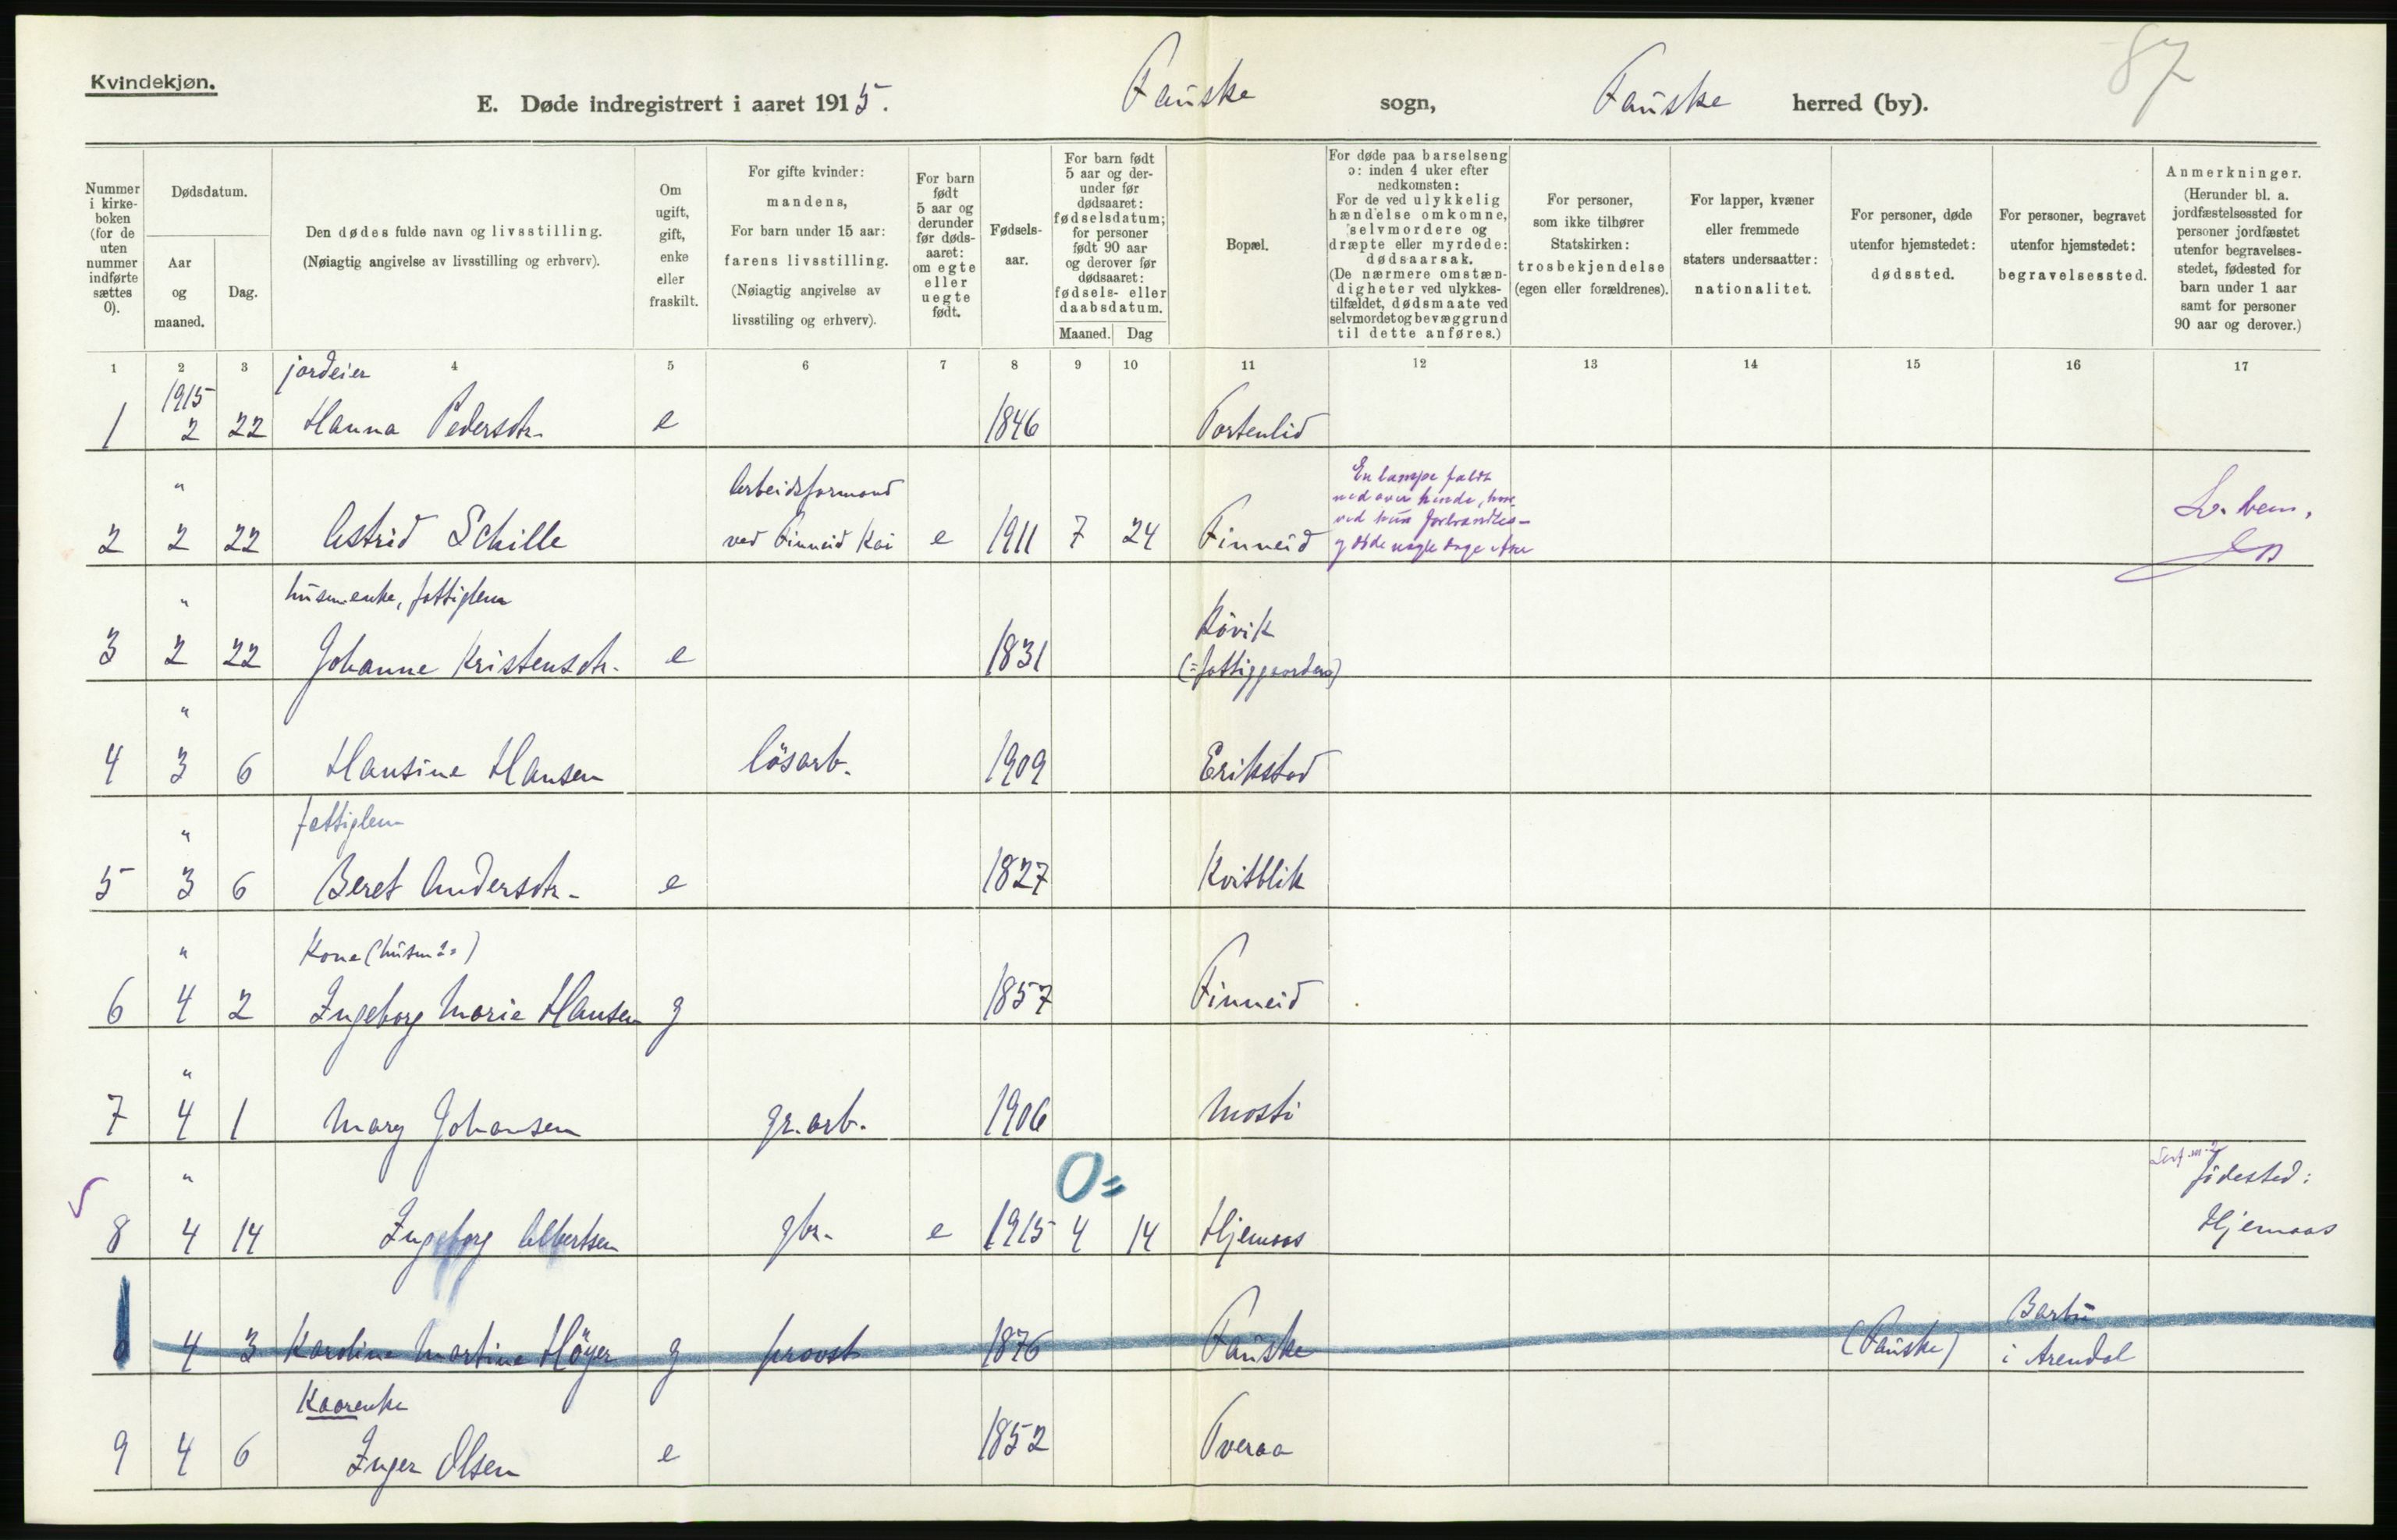 87
Kvindekjøn.
E. Døde indregistrert i aaret 1915. Fauske sogn, Fauske herred (by).
Nummer i kirke-boken (for de uten nummer indførte sættes 0).
Dødsdatum.
Aar og maaned.
Dag.
Den dødes fulde navn og livsstilling.
(Nøiagtig angivelse av livsstilling og erhverv).
Om ugift, gift, enke eller fraskilt.
For gifte kvinder:
mandens,
For barn under 15 aar:
farens livsstilling.
(Nøiagtig angivelse av
livsstiling og erhverv).
For barn født 5 aar og derunder før døds-aaret: om egte eller uegte født.
Fødsels-aar.
For barn født
5 aar og der-
under før
dødsaaret:
fødselsdatum;
for personer
født 90 aar
og derover før
dødsaaret:
fødsels- eller
daabsdatum.
Maaned. Dag
Bopæl.
For døde paa barselseng
ɔ: inden 4 uker efter
nedkomsten:
For de ved ulykkelig
hændelse omkomne,
selvmordere og
dræpte eller myrdede:
dødsaarsak.
(De nærmere omstæn-
digheter ved ulykkes-
tilfældet, dødsmaate ved
selvmordet og bevæggrund
til dette anføres.)
For personer,
som ikke tilhører
Statskirken:
trosbekjendelse
(egen eller forældrenes).
For lapper, kvæner
eller fremmede
staters undersaatter:
nationalitet.
For personer, døde
utenfor hjemstedet:
dødssted.
For personer, begravet
utenfor hjemstedet:
begravelsessted.
Anmerkninger.
(Herunder bl. a.
jordfæstelsessted for
personer jordfæstet
utenfor begravelses-
stedet, fødested for
barn under 1 aar
samt for personer
90 aar og derover.)
1 2 3 4 5 6 7 8 9 10 11 12 13 14 15 16 17
jordeier
1915
1 2 22 Hanna Pedersdtr. e 1846 Tortenlid
" Arbeidsformand
En lampe faldt
ned over hende, hvor
ved hun forbrændtes
og døde nogle dage
2 2 22 Astrid Schille ved Finneid Kai e 1911 7 24 Finneid
" husm.enke, fattiglem
Røvik
3 2 22 Johanne Kristensdtr. e 1831 (= fattiggaarden)
"
4 3 6 Hansine Hansen løsarb. 1909 Erikstad
" fattiglem
5 3 6 Beret Andersdtr. e 1827 Kvitblik
" Kone (husm
6 4 2 Ingeborg Marie Hansen g 1857 Finneid
"
7 4 1 Mary Johansen gr.arb. 1906 Mosti
" 0=
fødested:
8 4 14 Ingeborg Albertsen gbr. e 1915 4 14 Hjemaas Hjemaas
Barbu
4 3 Karoline Martine Höyer g provst 1876 Fauske (Fauske) i Arendal
Kaarenke
9 4 6 Inger Olsen e 1852 Tveraa